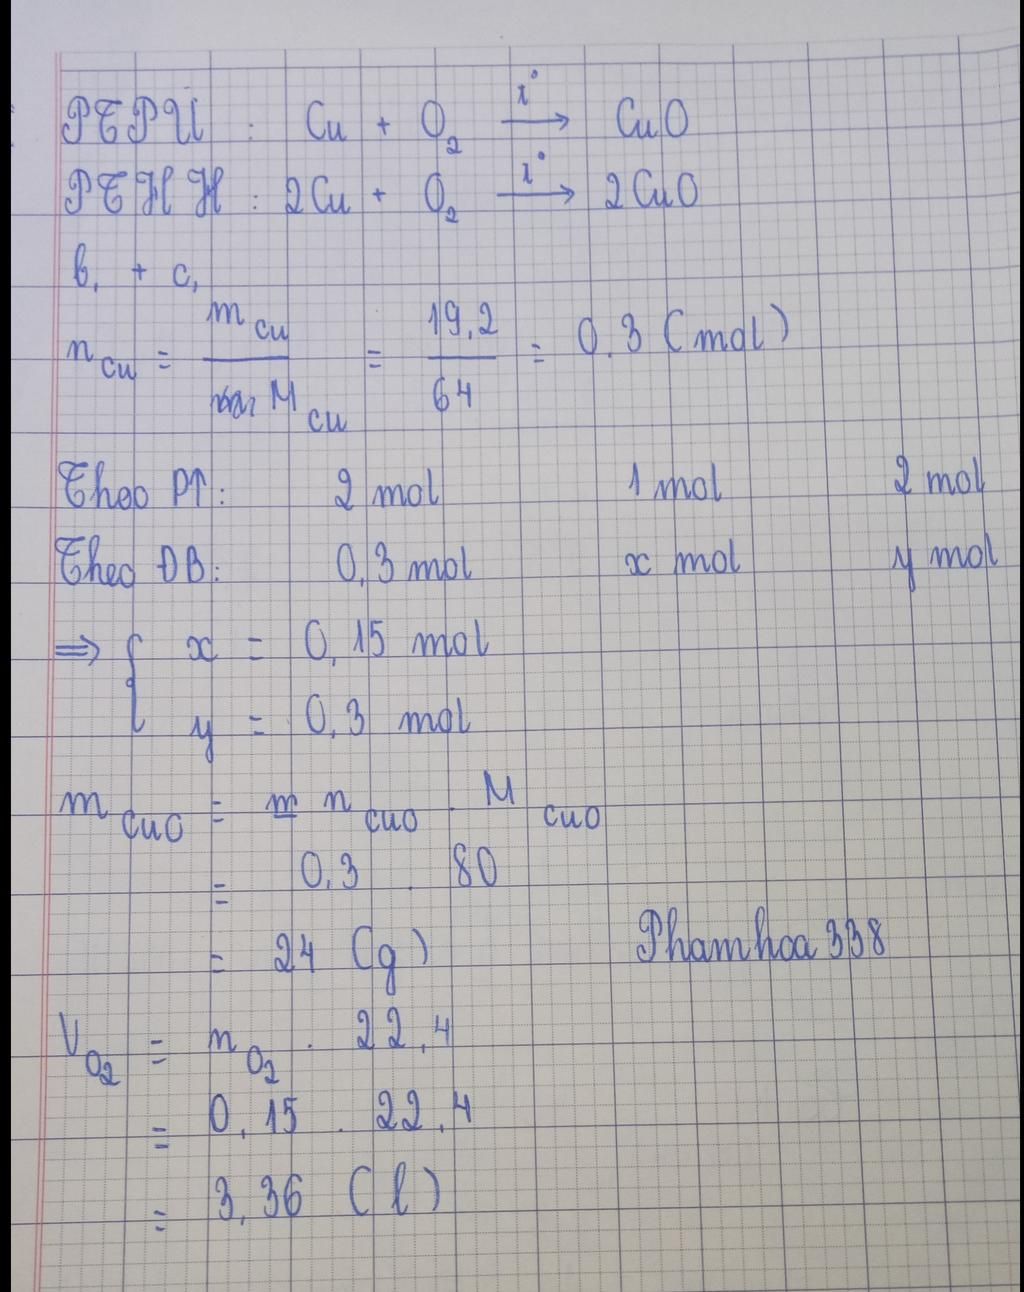 PTPƯ : Cu + O2 t° → CuO
PTHH : 2Cu + O2 t° → 2CuO
b, + c,
n Cu = m Cu / M Cu = 19,2 / 64 = 0,3 (mol)
Theo PT: 2 mol 1 mol 2 mol
Theo ĐB: 0,3 mol x mol y mol
⇒ { x = 0,15 mol
y = 0,3 mol
m CuO = m n CuO . M CuO
= 0,3 . 80
= 24 (g) Phamhoa338
V O2 = n O2 . 22,4
= 0,15 . 22,4
= 3,36 (l)